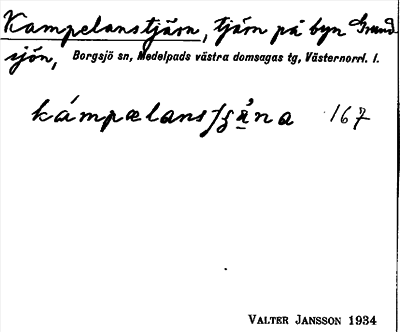 Kampelanstjärn, tjärn på byn Grund
sjön, Borgsjö sn, Medelpads västra domsagas tg, Västernorrl. l.
kámpælansʃʒä̀na 167
VALTER JANSSON 1934